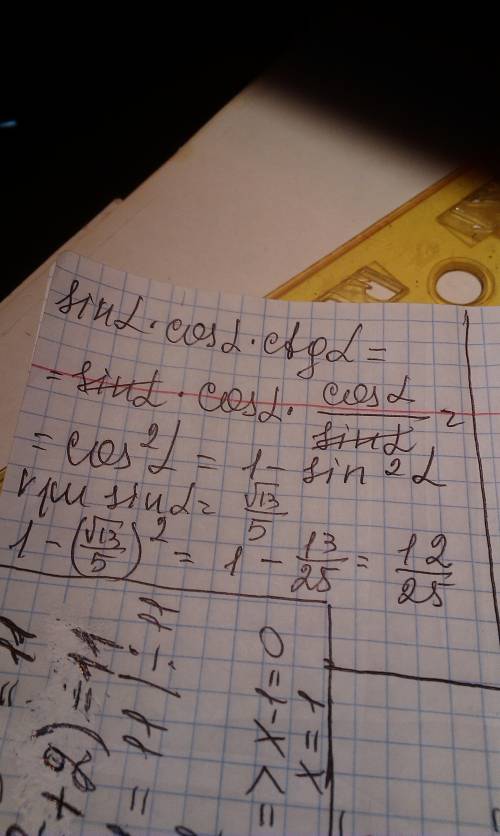 sinα · cosα · ctgα =
= sinα · cosα · cosα/sinα =
= cos²α = 1 - sin²α
при sinα = √13/5
1 - (√13/5)² = 1 - 13/25 = 12/25
x - 1 = 0
x = 1